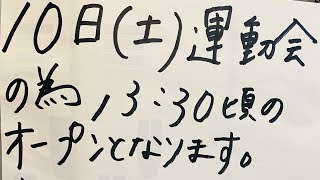 10日(土)運動会
の為13:30頃の
オープンとなります。